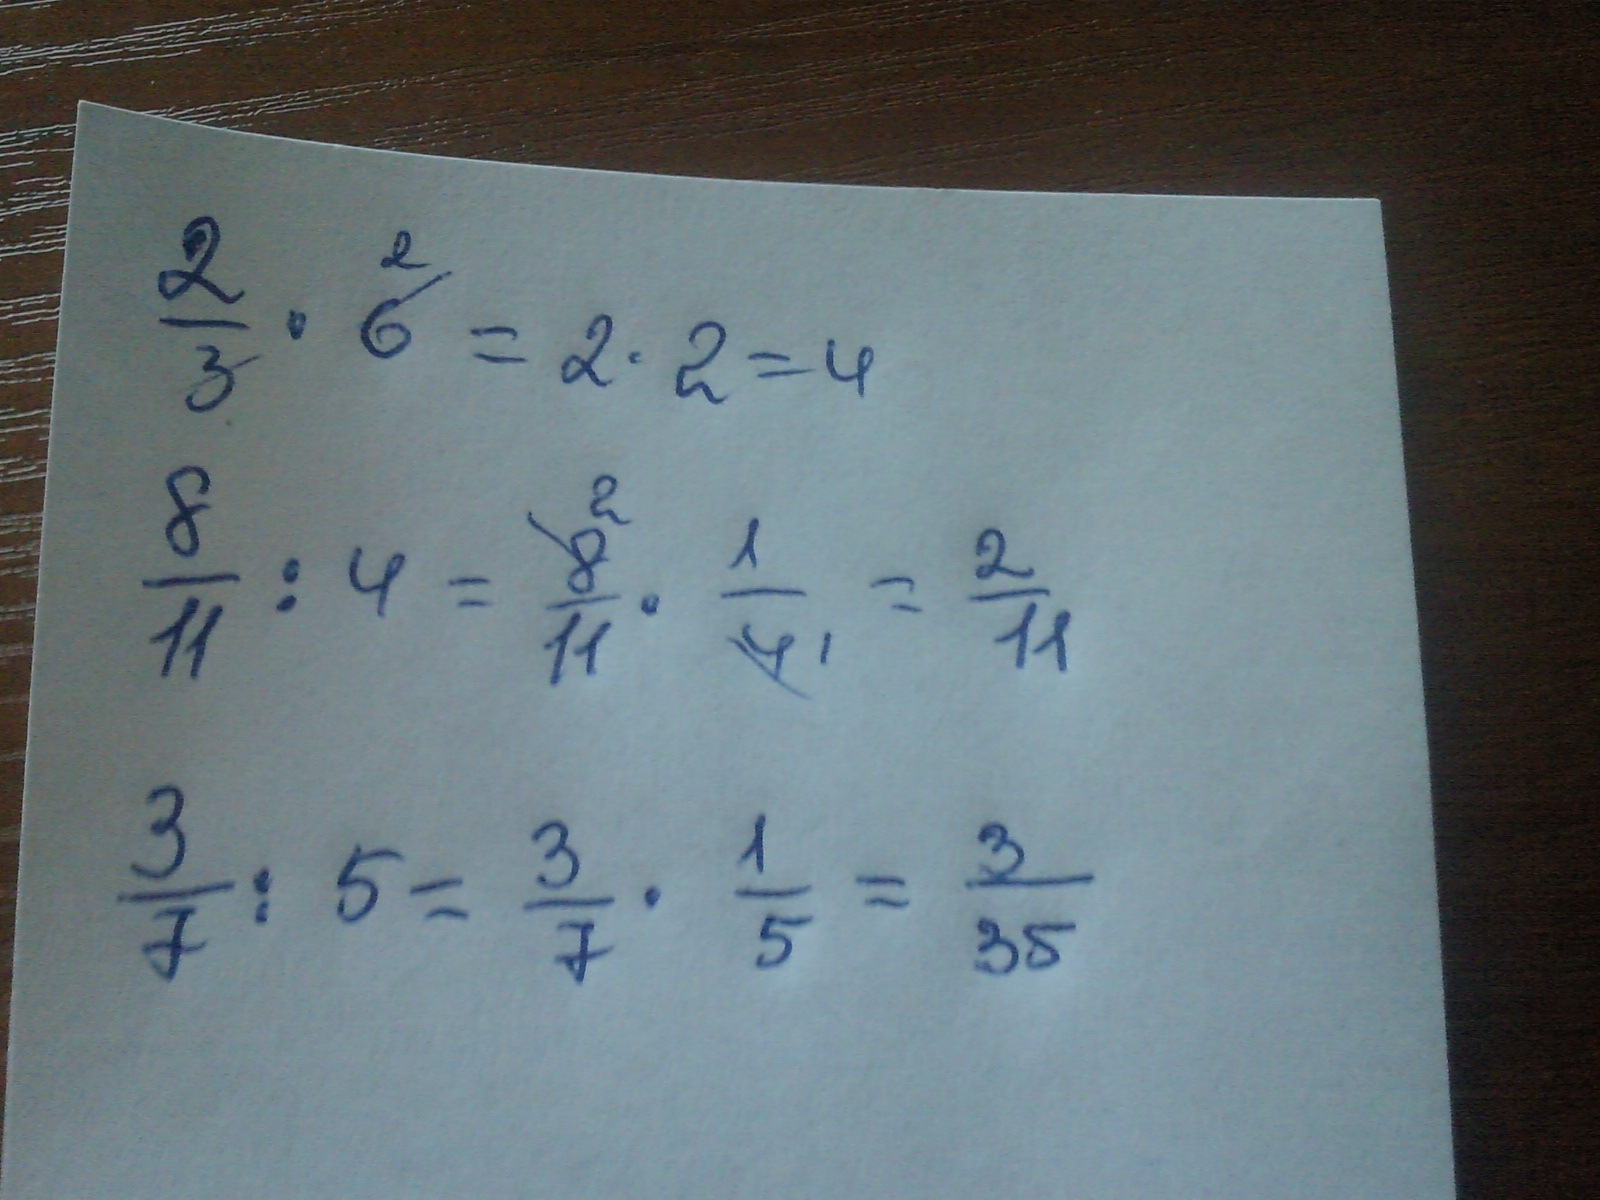 2/3 · 6 2 = 2 · 2 = 4
8/11 : 4 = 8 2/11 · 1/4 1 = 2/11
3/7 : 5 = 3/7 · 1/5 = 3/35